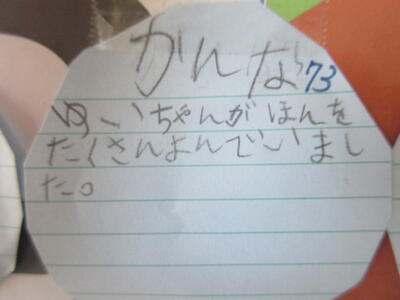 かんな
73
ゆいちゃんがほんを
たくさんよんでいまし
た。